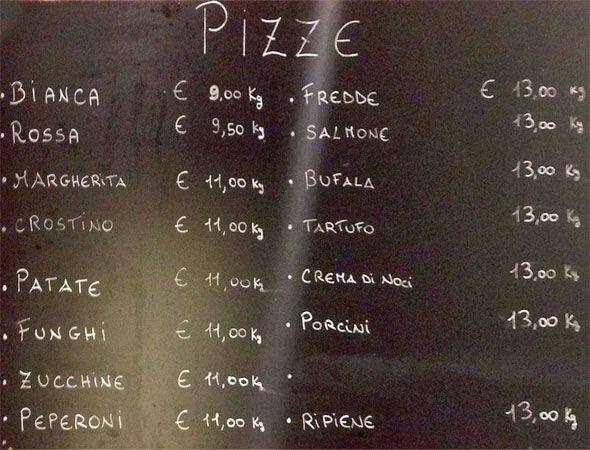 PIZZE
· BIANCA € 9,00 Kg
· ROSSA € 9,50 Kg
· MARGHERITA € 11,00 Kg
· CROSTINO € 11,00 Kg
· PATATE € 11,00 K
· FUNGHI € 11,00 Kg
· ZUCCHINE € 11,00 Kg
· PEPERONI € 11,00 Kg
· FREDDE € 13,00 Kg
· SALMONE 13,00 Kg
· BUFALA 13,00 Kg
· TARTUFO 13,00 Kg
· CREMA DI NOCI 13,00 Kg
· PORCINI 13,00 Kg
·
· RIPIENE 13,00 Kg